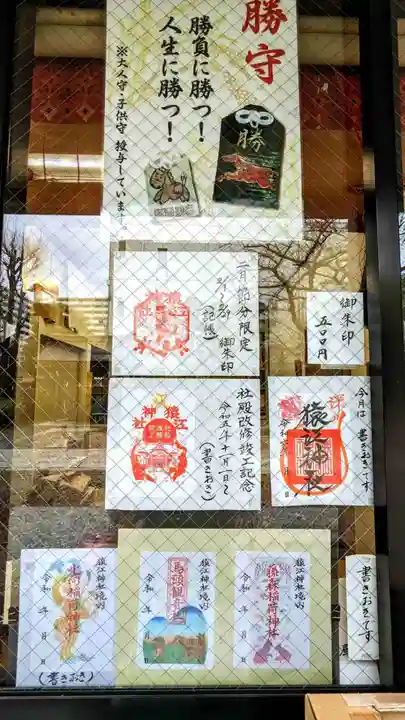 勝守
勝負に勝つ！
人生に勝つ！
※大人守・子供守 授与しています。
勝
二月節分限定
御朱印
(記帳)
猿江
神社
御朱印
五〇〇円
社殿改修竣工記念
令和五年十一月一日〜
(書きおき)
猿江
神社
今月は 書きおきです
猿江神社
猿江神社境内
令和 年 月 日
(書きおき)
猿江神社境内
馬頭観音
令和 年 月 日
猿江神社境内
藤森稲荷神社
令和 年 月 日
書きおきです